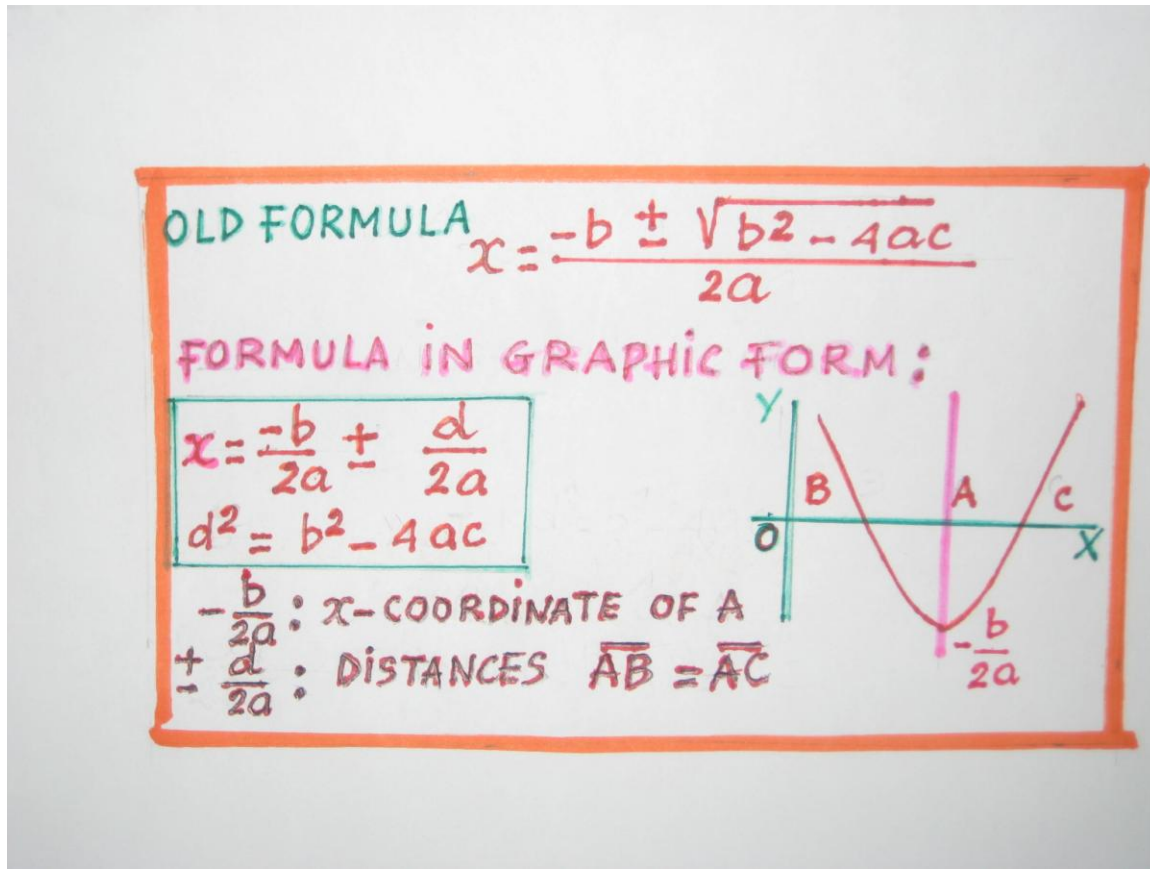 OLD FORMULA x = -b ± √b² - 4ac / 2a
FORMULA IN GRAPHIC FORM:
x = -b/2a ± d/2a
d² = b² - 4ac
-b/2a : x-COORDINATE OF A
± d/2a : DISTANCES A̅B̅ = A̅C̅
Y
B A C
O X
-b/2a